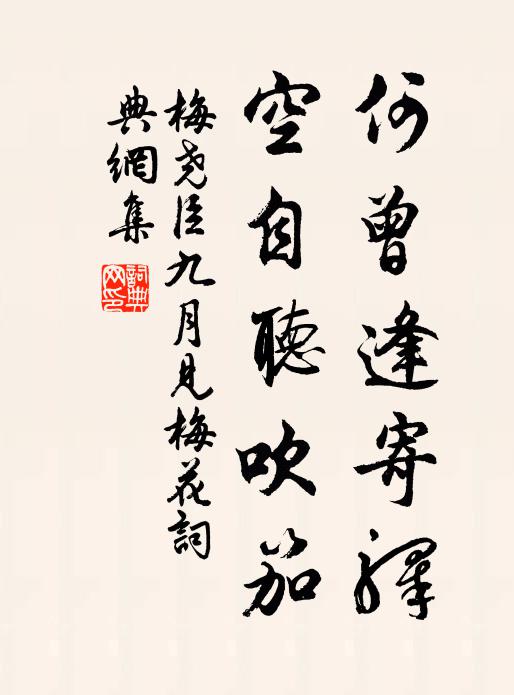 何曾逢寄驛
空自聽吹笳
梅尧臣九月見梅花詞
典網集
詞典
网印